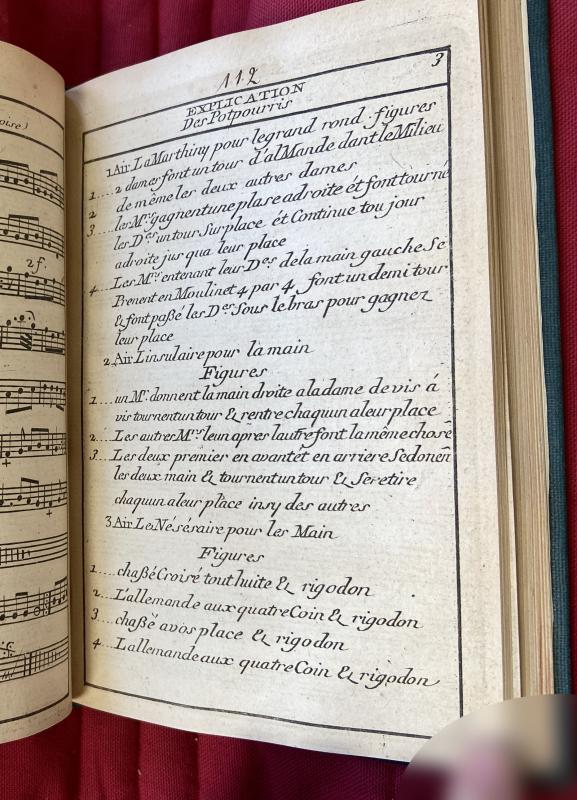 oise)
2f.
112
3
EXPLICATION
Des Potpourris
1 Air La Marthiny pour le grand rond figures
1.... 2 dames font un tour d'alMande dant le Milieu
2 de même les deux autres dames
3.... les Mrs gagnent une plase adroite ét font tourné
les Des un tour Sur place ét Continue tou jour
adroite jus qua leur place
4.... Les Mrs en tenant leur Des de la main gauche Se
Prenent en Moulinet 4 par 4 font un demi tour
& font paßé les Des Sous le bras pour gagnez
leur place
2 Air L'insulaire pour la main
Figures
1.... un Mr. donnent la main droite a la dame de vis á
vis tournent un tour & rentre chaquun a leur place
2.... Les autres Mrs l'eun aprer lautre font la même chose
3.... Les deux premier en avant ét en arriere Se donén
les deux main & tournent un tour & se retire
chaquun a leur place insy des autres
3 Air Le Nésésaire pour les Main
Figures
1.... chaßé Croisé tout huite & rigodon
2.... L'allemande aux quatre Coin & rigodon
3.... chaßé a vos place & rigodon
4.... L'allemande aux quatre Coin & rigodon